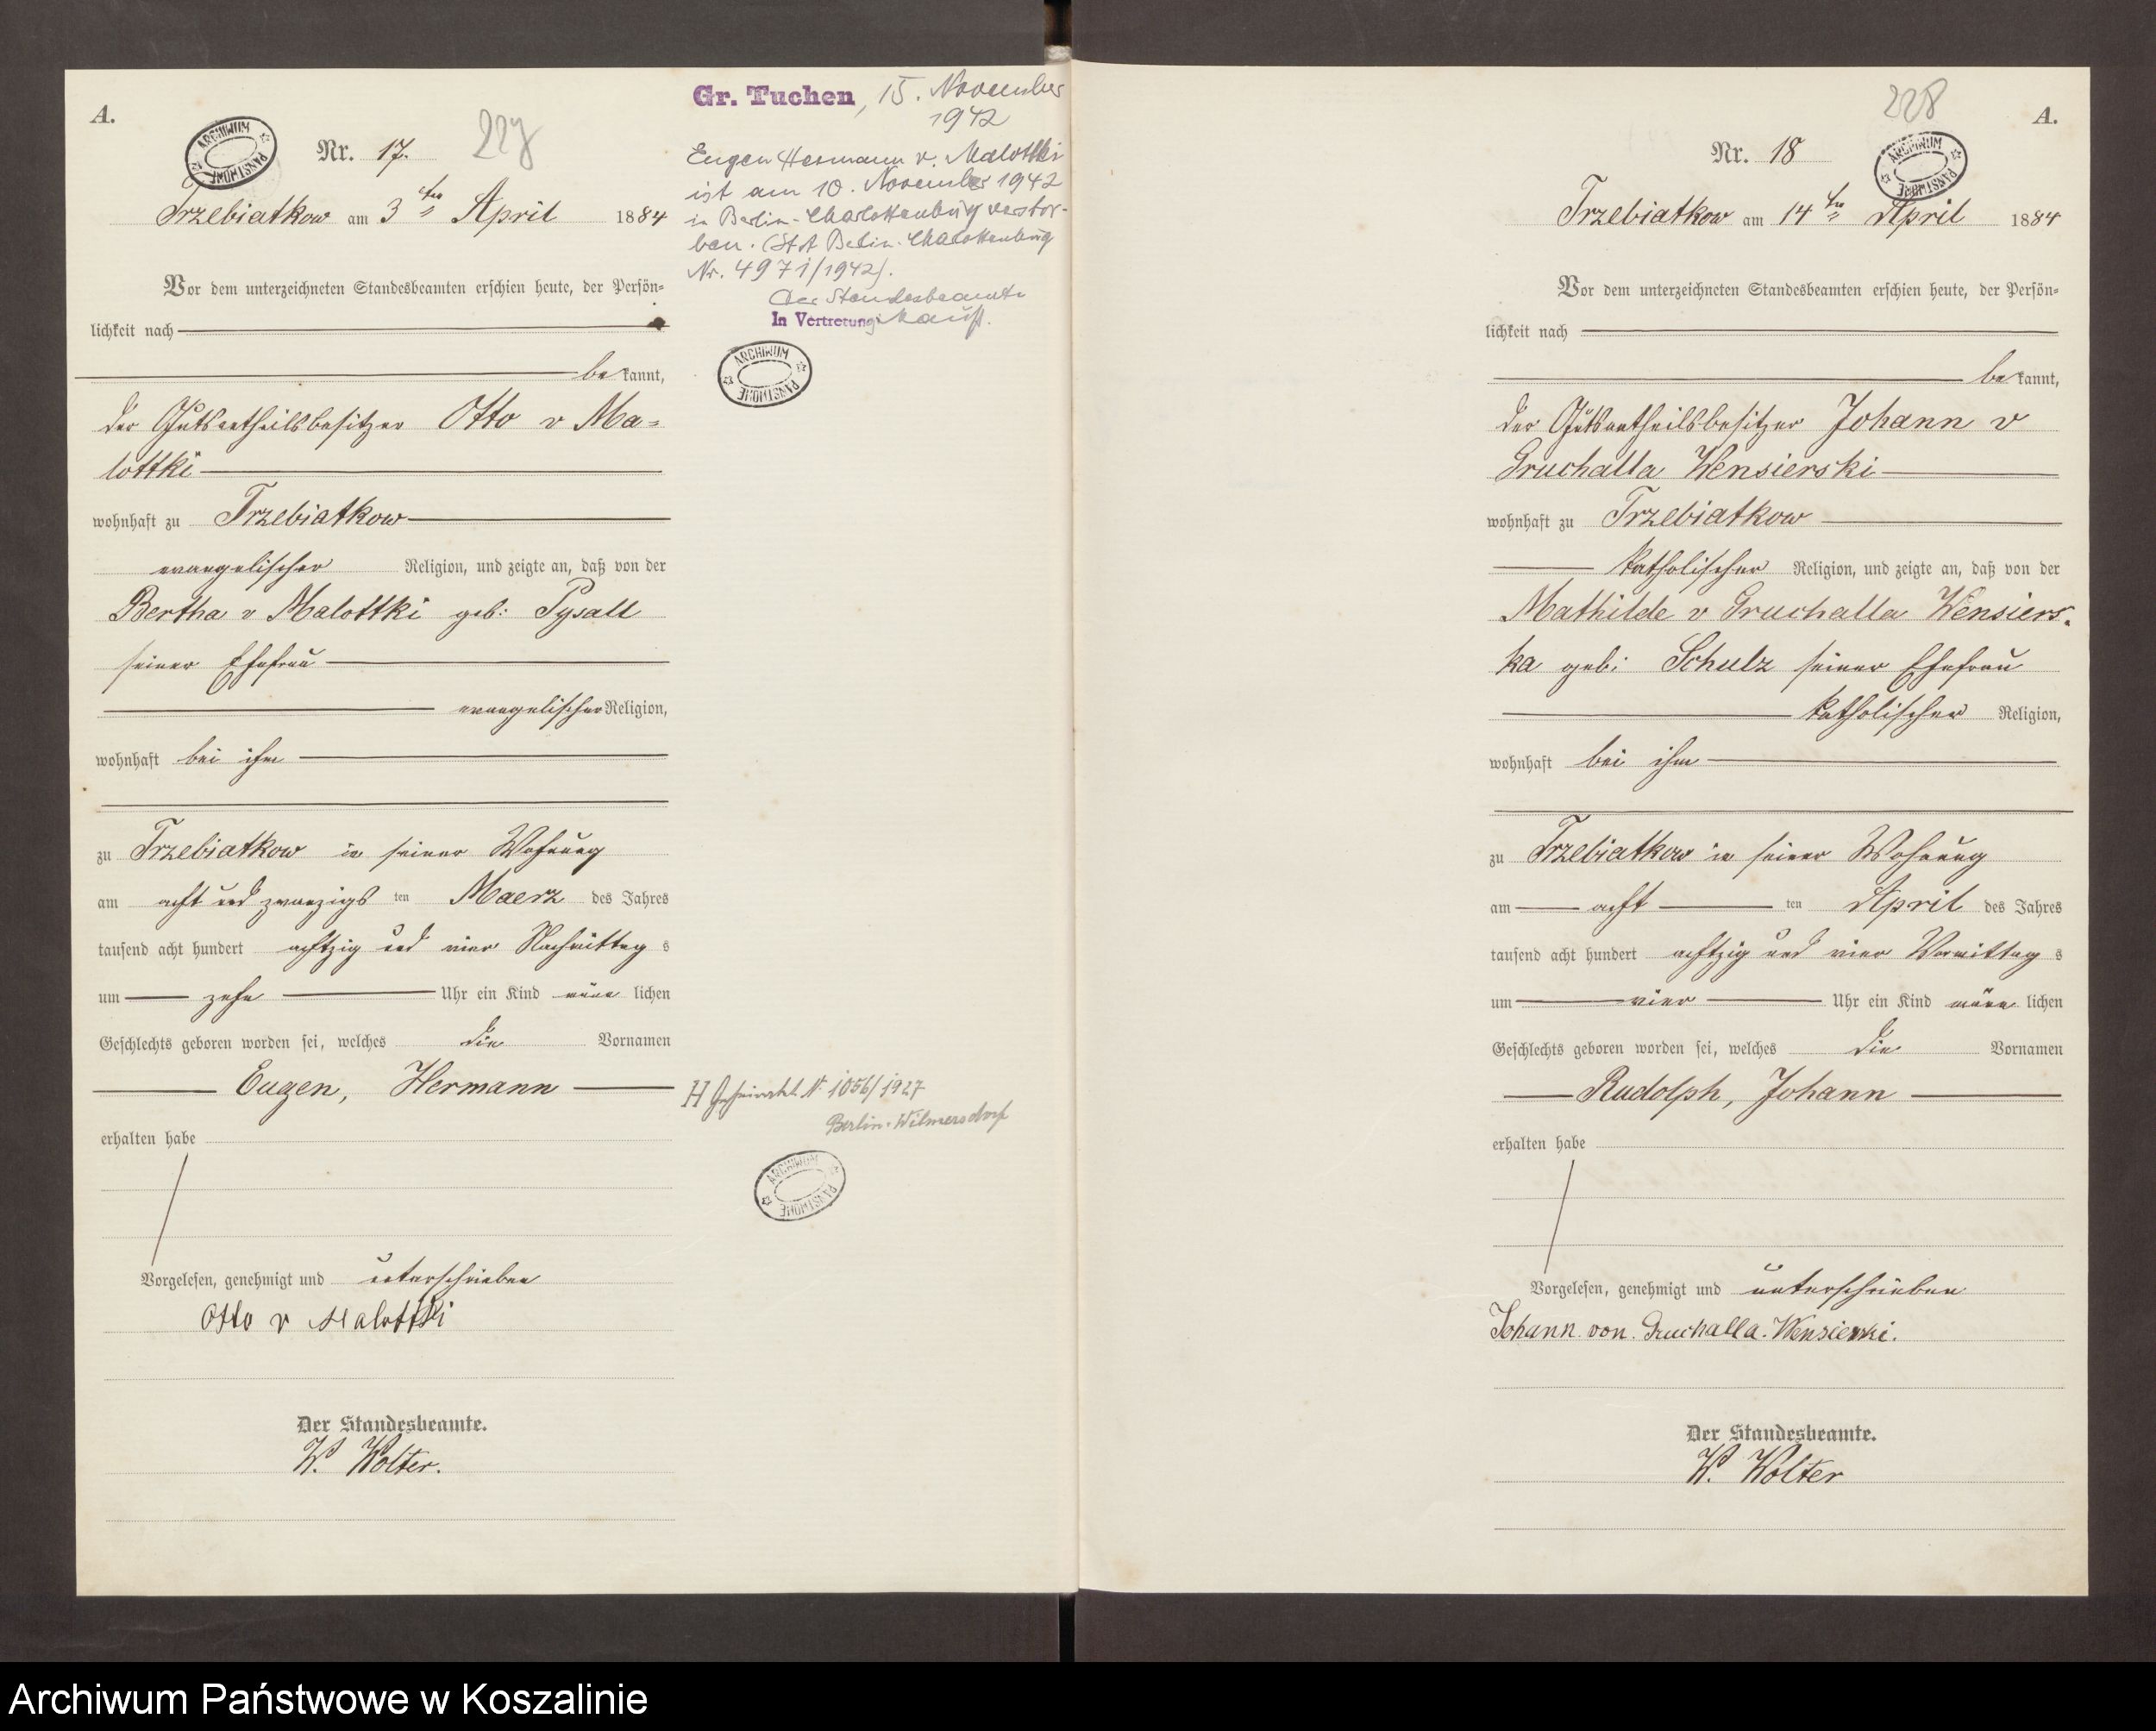 A.
ARCHIWUM PAŃSTWOWE
Nr. 17. 227
Trzebiatkow am 3ten April 1884
Vor dem unterzeichneten Standesbeamten erschien heute, der Persön=
lichkeit nach
bekannt,
der Gutsantheilsbesitzer Otto v Ma=
lottki
wohnhaft zu Trzebiatkow
evangelischer Religion, und zeigte an, daß von der
Bertha v Malottki geb: Pysall
seiner Ehefrau
evangelischer Religion,
wohnhaft bei ihm
zu Trzebiatkow in seiner Wohnung
am acht und zwanzigs ten Maerz des Jahres
tausend acht hundert achtzig und vier Nachmittag s
um zehn Uhr ein Kind männ lichen
Geschlechts geboren worden sei, welches die Vornamen
Eugen, Hermann
erhalten habe
Vorgelesen, genehmigt und unterschrieben
Otto v Malottki
Der Standesbeamte.
W. Wolter.
Gr. Tuchen, 15. November
1942
Eugen Hermann v. Malottki
ist am 10. November 1942
in Berlin-Charlottenburg verstor-
ben. (StA Berlin-Charlottenburg
Nr. 4971/1942).
Der Standesbeamte
In Vertretung:
ARCHIWUM PAŃSTWOWE
H Nr. 1056/1927
Berlin-Wilmersdorf
ARCHIWUM PAŃSTWOWE
228
A.
Nr. 18
ARCHIWUM PAŃSTWOWE
Trzebiatkow am 14ten April 1884
Vor dem unterzeichneten Standesbeamten erschien heute, der Persön=
lichkeit nach
bekannt,
der Gutsantheilsbesitzer Johann v
Gruchalla Wensierski
wohnhaft zu Trzebiatkow
katholischer Religion, und zeigte an, daß von der
Mathilde v Gruchalla Wensiers=
ka geb: Schulz seiner Ehefrau
katholischer Religion,
wohnhaft bei ihm
zu Trzebiatkow in seiner Wohnung
am acht ten April des Jahres
tausend acht hundert achtzig und vier Vormittag s
um vier Uhr ein Kind männ lichen
Geschlechts geboren worden sei, welches die Vornamen
Rudolph, Johann
erhalten habe
Vorgelesen, genehmigt und unterschrieben
Johann von Gruchalla-Wensierski.
Der Standesbeamte.
W. Wolter
Archiwum Państwowe w Koszalinie